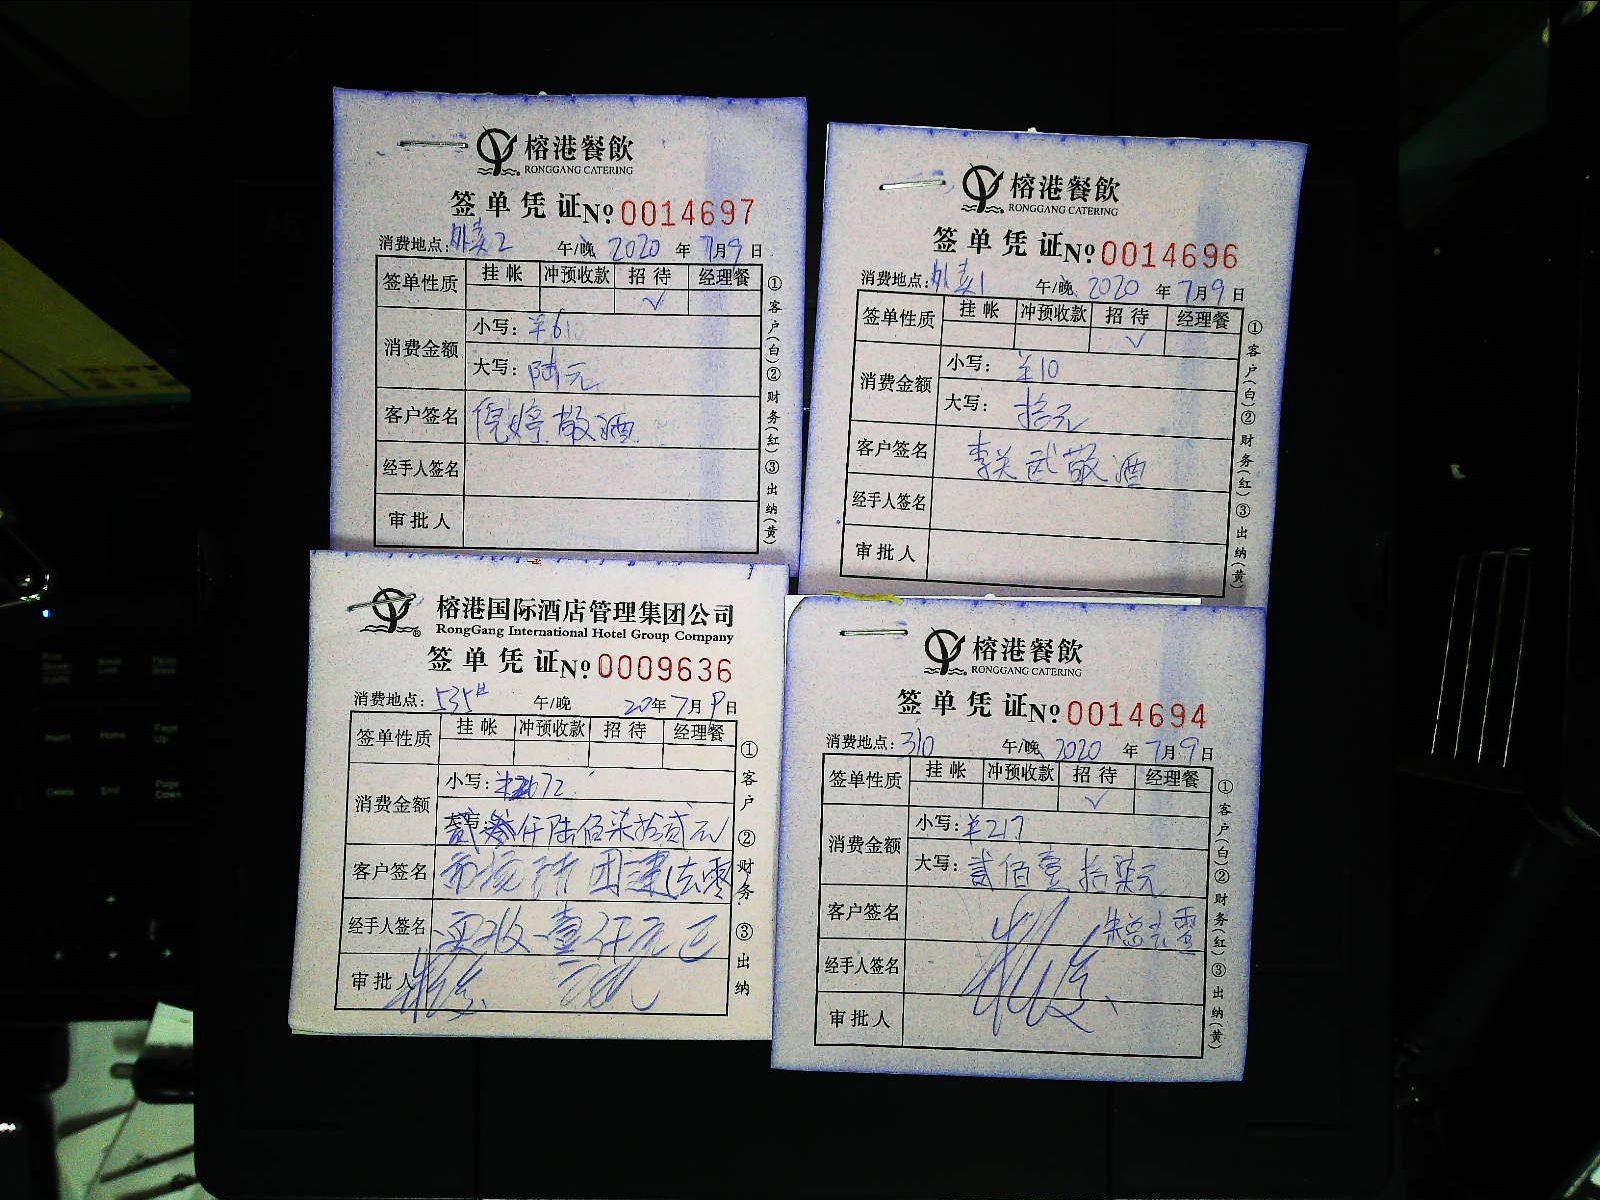 榕港餐飲
RONGGANG CATERING
签单凭证 № 0014697
消费地点：外卖2 午/晚 2020年7月9日
签单性质 挂帐 冲预收款 招待 经理餐
√
消费金额 小写：￥6
大写：陆元
客户签名 倪婷敬酒
经手人签名
审批人
①客户(白)②财务(红)③出纳(黄)
榕港餐飲
RONGGANG CATERING
签单凭证 № 0014696
消费地点：外卖1 午/晚 2020年7月9日
签单性质 挂帐 冲预收款 招待 经理餐
√
消费金额 小写：￥10
大写：拾元
客户签名 武敬酒
经手人签名
审批人
①客户(白)②财务(红)③出纳(黄)
榕港国际酒店管理集团公司
RongGang International Hotel Group Company
签单凭证 № 0009636
消费地点：535 午/晚 20年7月9日
签单性质 挂帐 冲预收款 招待 经理餐
消费金额 小写：￥2672
大写：贰仟陆佰柒拾贰元
客户签名 团建去零
经手人签名 实收壹仟元正
审批人
①客户②财务③出纳
榕港餐飲
RONGGANG CATERING
签单凭证 № 0014694
消费地点：310 午/晚 2020年7月9日
签单性质 挂帐 冲预收款 招待 经理餐
√
消费金额 小写：￥217
大写：贰佰壹拾柒元
客户签名 朱总去零
经手人签名
审批人
①客户(白)②财务(红)③出纳(黄)